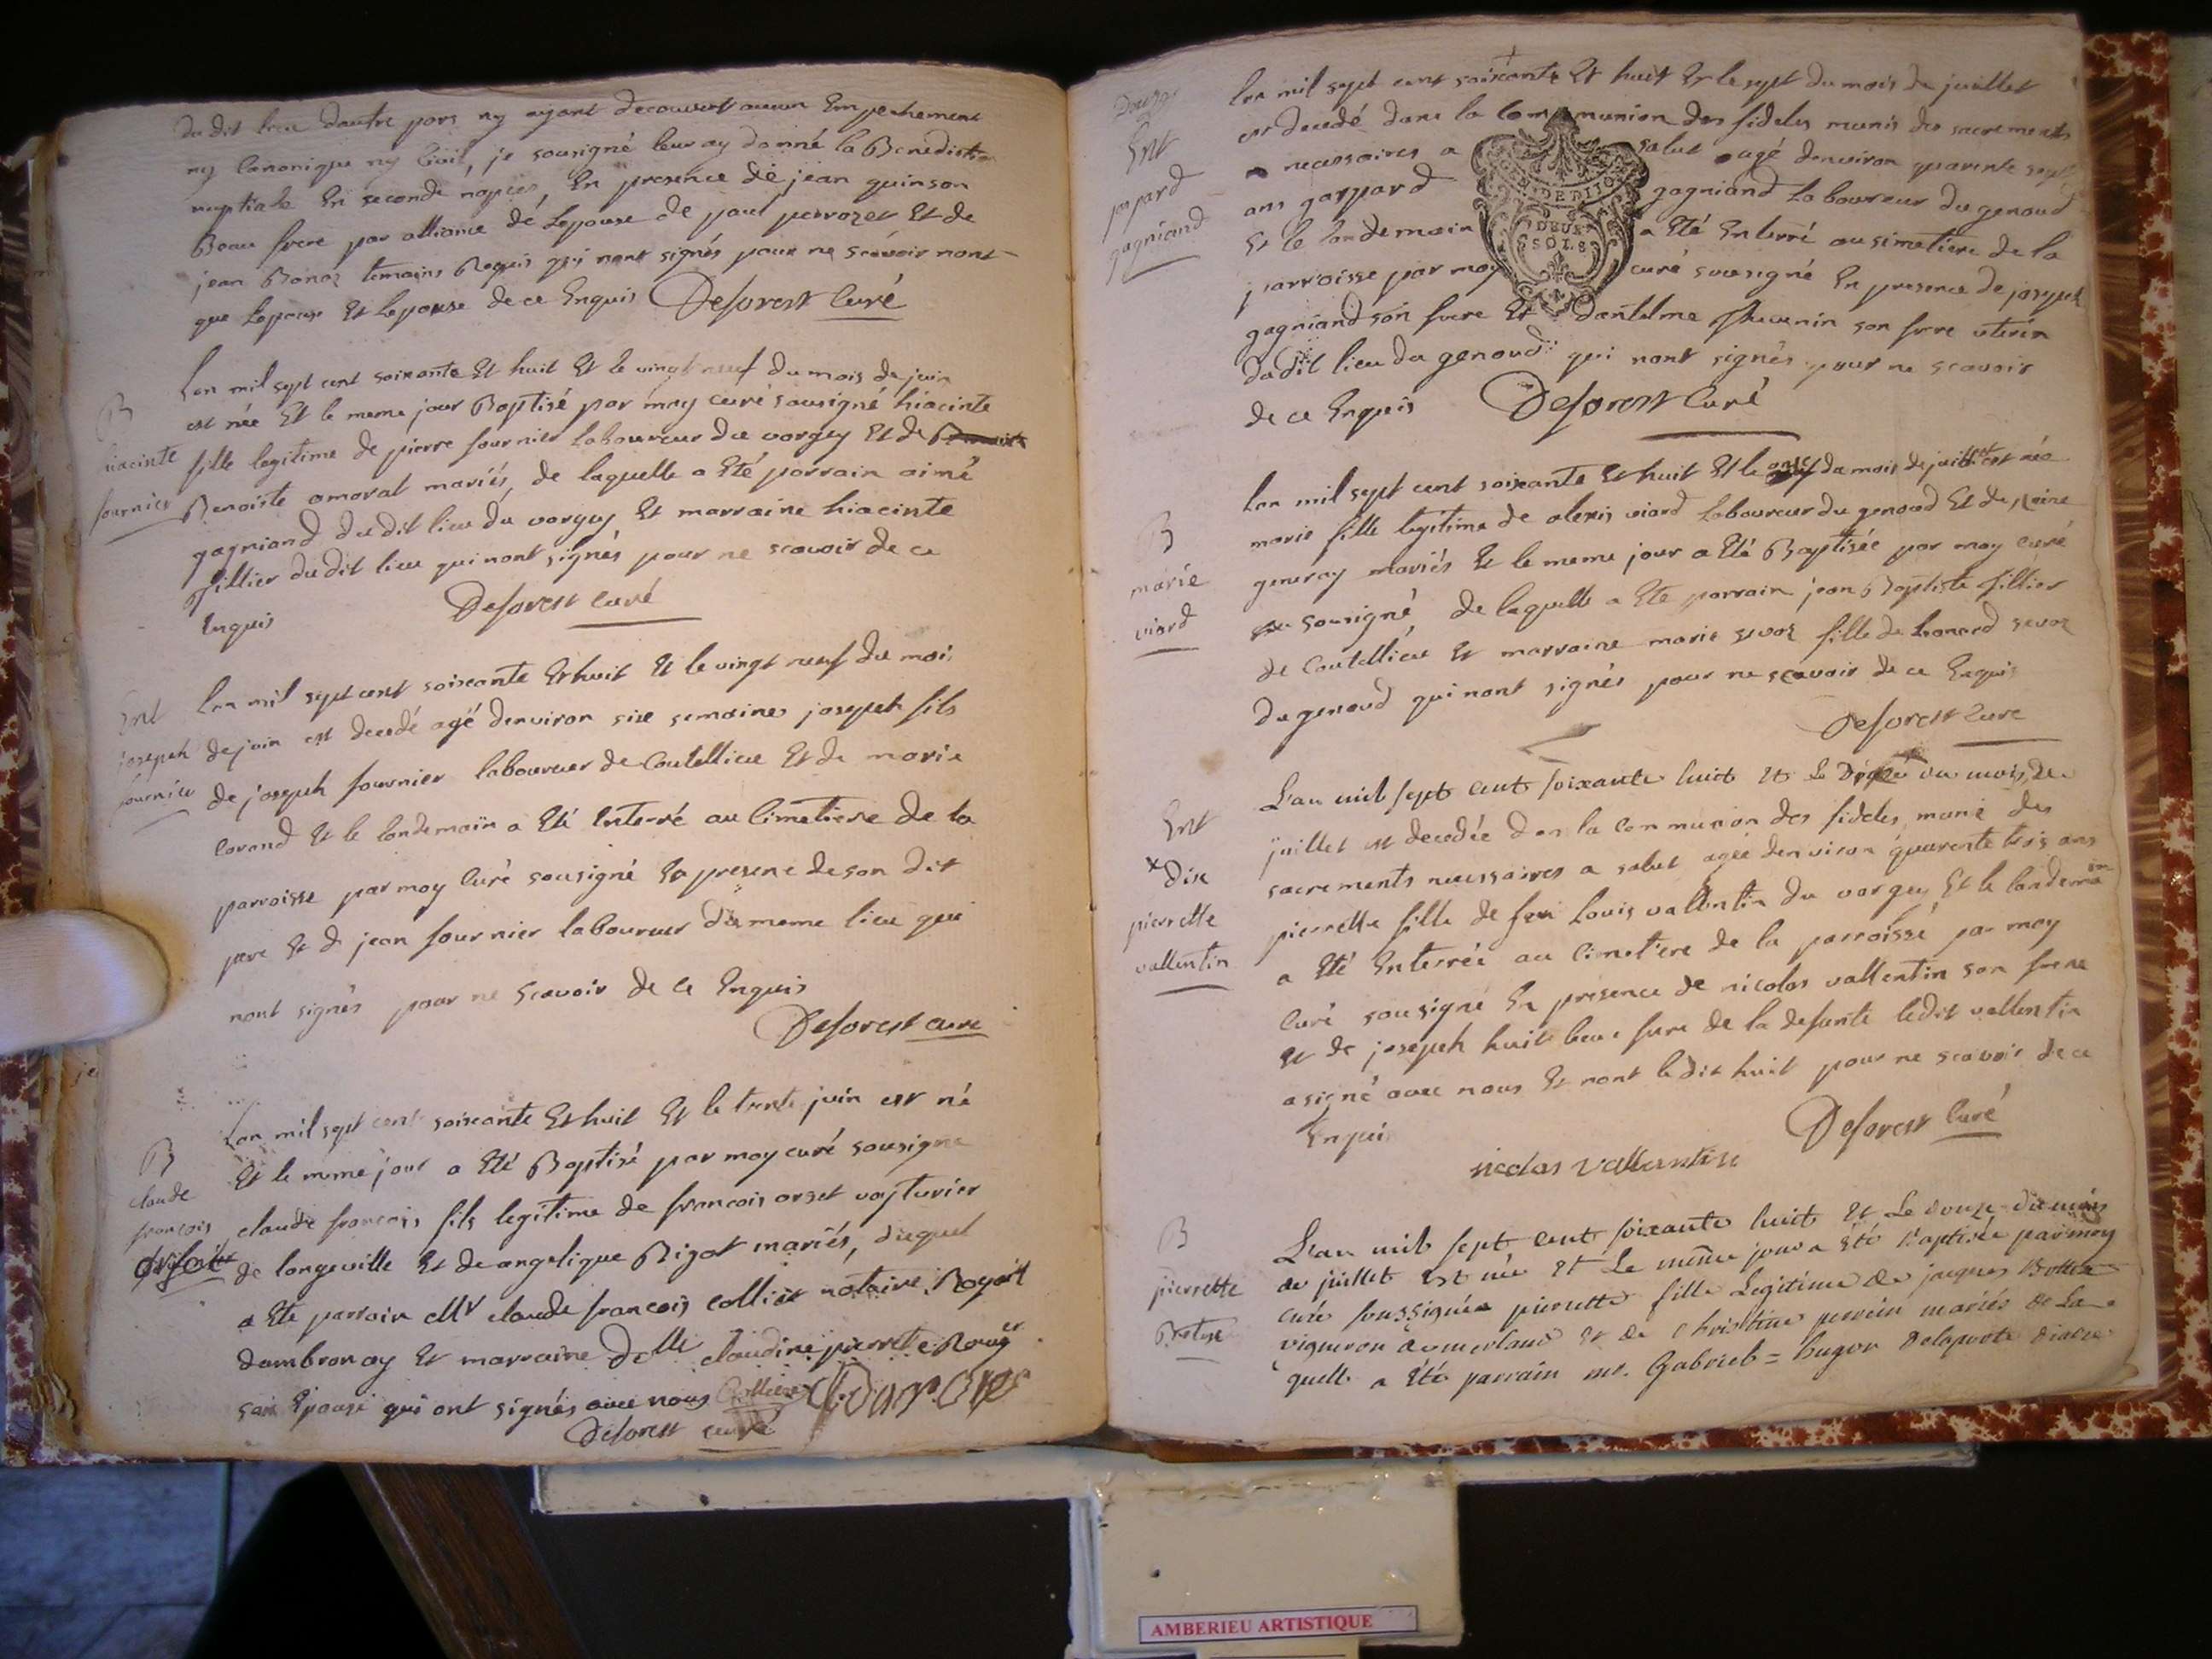 du dit lieu dautre part ny ayant decouvert aucun Empechement
ny Canonique ny Civil, je sousigné leur ay donné la Benediction
nuptiale En seconde nopces, En presence de jean quinson
Beau frere par alliance dé Lepouse de paul perrozet Et de
jean Bonaz temoins Requis qui nont signés pour ne scavoir non
que Lepoux Et Lepouse de ce Enquis Deforest Curé
B
hiacinte
fournier
Lan mil sept cent soixante Et huit Et le vingt neuf du mois de juin
est née Et le meme jour Baptisé par moy curé sousigné hiacinte
fille legitime de pierre fournier Laboureur du vorgey Et de
Benoiste amoral mariés, de laquelle a Eté parrain aimé
gagniand du dit lieu du vorgey Et marraine hiacinte
fillier du dit lieu qui nont signés pour ne scavoir de ce
Enquis Deforest curé
Ent
joseph
fournier
Lan mil sept cent soixante Et huit Et le vingt neuf du mois
de juin est decedé agé denviron six semaines joseph fils
de joseph fournier laboureur de Coutellieu Et de marie
Corand Et le landemain a Eté Enterré au Cimetiere de la
parroisse par moy Curé sousigné En presence de son dit
pere Et d jean fournier laboureur du meme lieu qui
nont signés pour ne scavoir de ce Enquis
Deforest cure
B
claude
francois
orset
Lan mil sept cent soixante Et huit Et le trente juin est né
Et le meme jour a Eté Baptisé par moy curé sousigné
claude francois fils legitime de francois orset voyturier
de longeville Et de angelique Bizot mariés, duquel
a Eté parrain Mr claude francois collier notaire Royal
dambronay Et marraine Delle claudine pierrette Roug
son Epouse qui ont signés avec nous Collier
Deforest curé
Ent
gaspard
gagniand
Lan mil sept cent soixante Et huit Et le sept du mois de juillet
est decedé dans la Communion des fideles munis des sacrements
necessaires a salut agé denviron quarente sept
ans gaspard gagniand Laboureur du genoud
Et le landemain a Eté Enterré au simetiere de la
parroisse par moy curé sousigné En presence de joseph
gagniand son frere Et dantelme Thevenin son frere uterin
du dit lieu du genoud qui nont signés pour ne scavoir
de ce Enquis Deforest Curé
GEN. DE DIJON
DEUX
SOLS
B
marie
viard
Lan mil sept cent soixante Et huit Et le onze du mois de juillet est née
marie fille legitime de alexis viard Laboureur du genoud Et de
generay mariés Et le meme jour a Eté Baptisée par moy curé
sousigné, de laquelle a Eté parrain jean Baptiste fillier
de Coutellieu Et marraine marie sevoz fille de Leonard sevoz
du genoud qui nont signés pour ne scavoir de ce Enquis
Deforest Cure
Ent
x dix
pierrette
vallentin
L'an mil sept cent soixante huit Et le du mois de
juillet est decedée dans la Communion des fideles munie des
sacrements necessaires a salut agée denviron quarente trois ans
pierrette fille de feu Louis vallentin du vorgey Et le landemain
a Eté Enterrée au Cimetiere de la parroisse par moy
Curé sousigné En presence de nicolas vallentin son frere
Et de joseph huit beau frere de la defunte ledit vallentin
a signé avec nous Et nont ledit huit pour ne scavoir de ce
Enquis Deforest Curé
nicolas vallentin
B
pierrette
L'an mil sept cent soixante huit Et Le douze du mois
de juillet Est née Et Le même jour a Eté Baptisée par moy
curé soussigné pierrette fille Légitime de jacques
vigneron a merland Et de Christine perrin mariés De La-
quelle a Eté parrain mr. Gabriel = hugon Delaporte diacre
AMBERIEU ARTISTIQUE